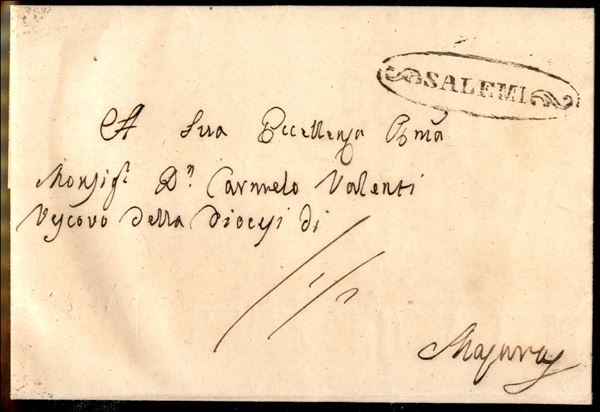 SALEMI
A Sua Eccellenza Rma
Monsigr. Dn. Carmelo Valenti
Vescovo della Diocesi di
Mazzara